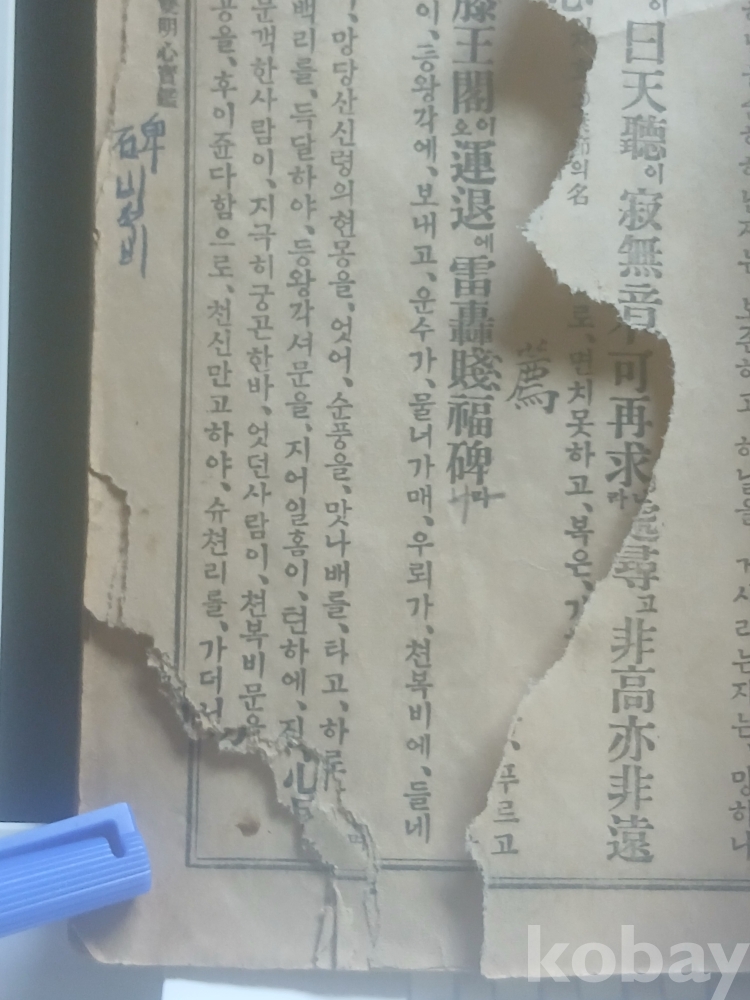 보존하고 하날을 거사리는자는 망하나
曰天聽이 寂無音
可再求라
尋고非高亦非遠
의 名
로、면치못하고、복은、
푸르고
薦
滕王閣이오運退에雷轟賤福碑라
이、등왕각에、보내고、운수가、물너가매、우뢰가、쳔복비에、들네
망당산신령의현몽을、엇어、순풍을、맛나배를、타고、하로
백리를、득달하야、등왕각셔문을、지어일홈이、텬하에、진
문객한사람이、지극히궁곤한바、엇던사람이、쳔복비문을
공을、후이쥰다함으로、쳔신만고하야、슈쳔리를、가더니
明心寶鑑
碑 비석비
kobay